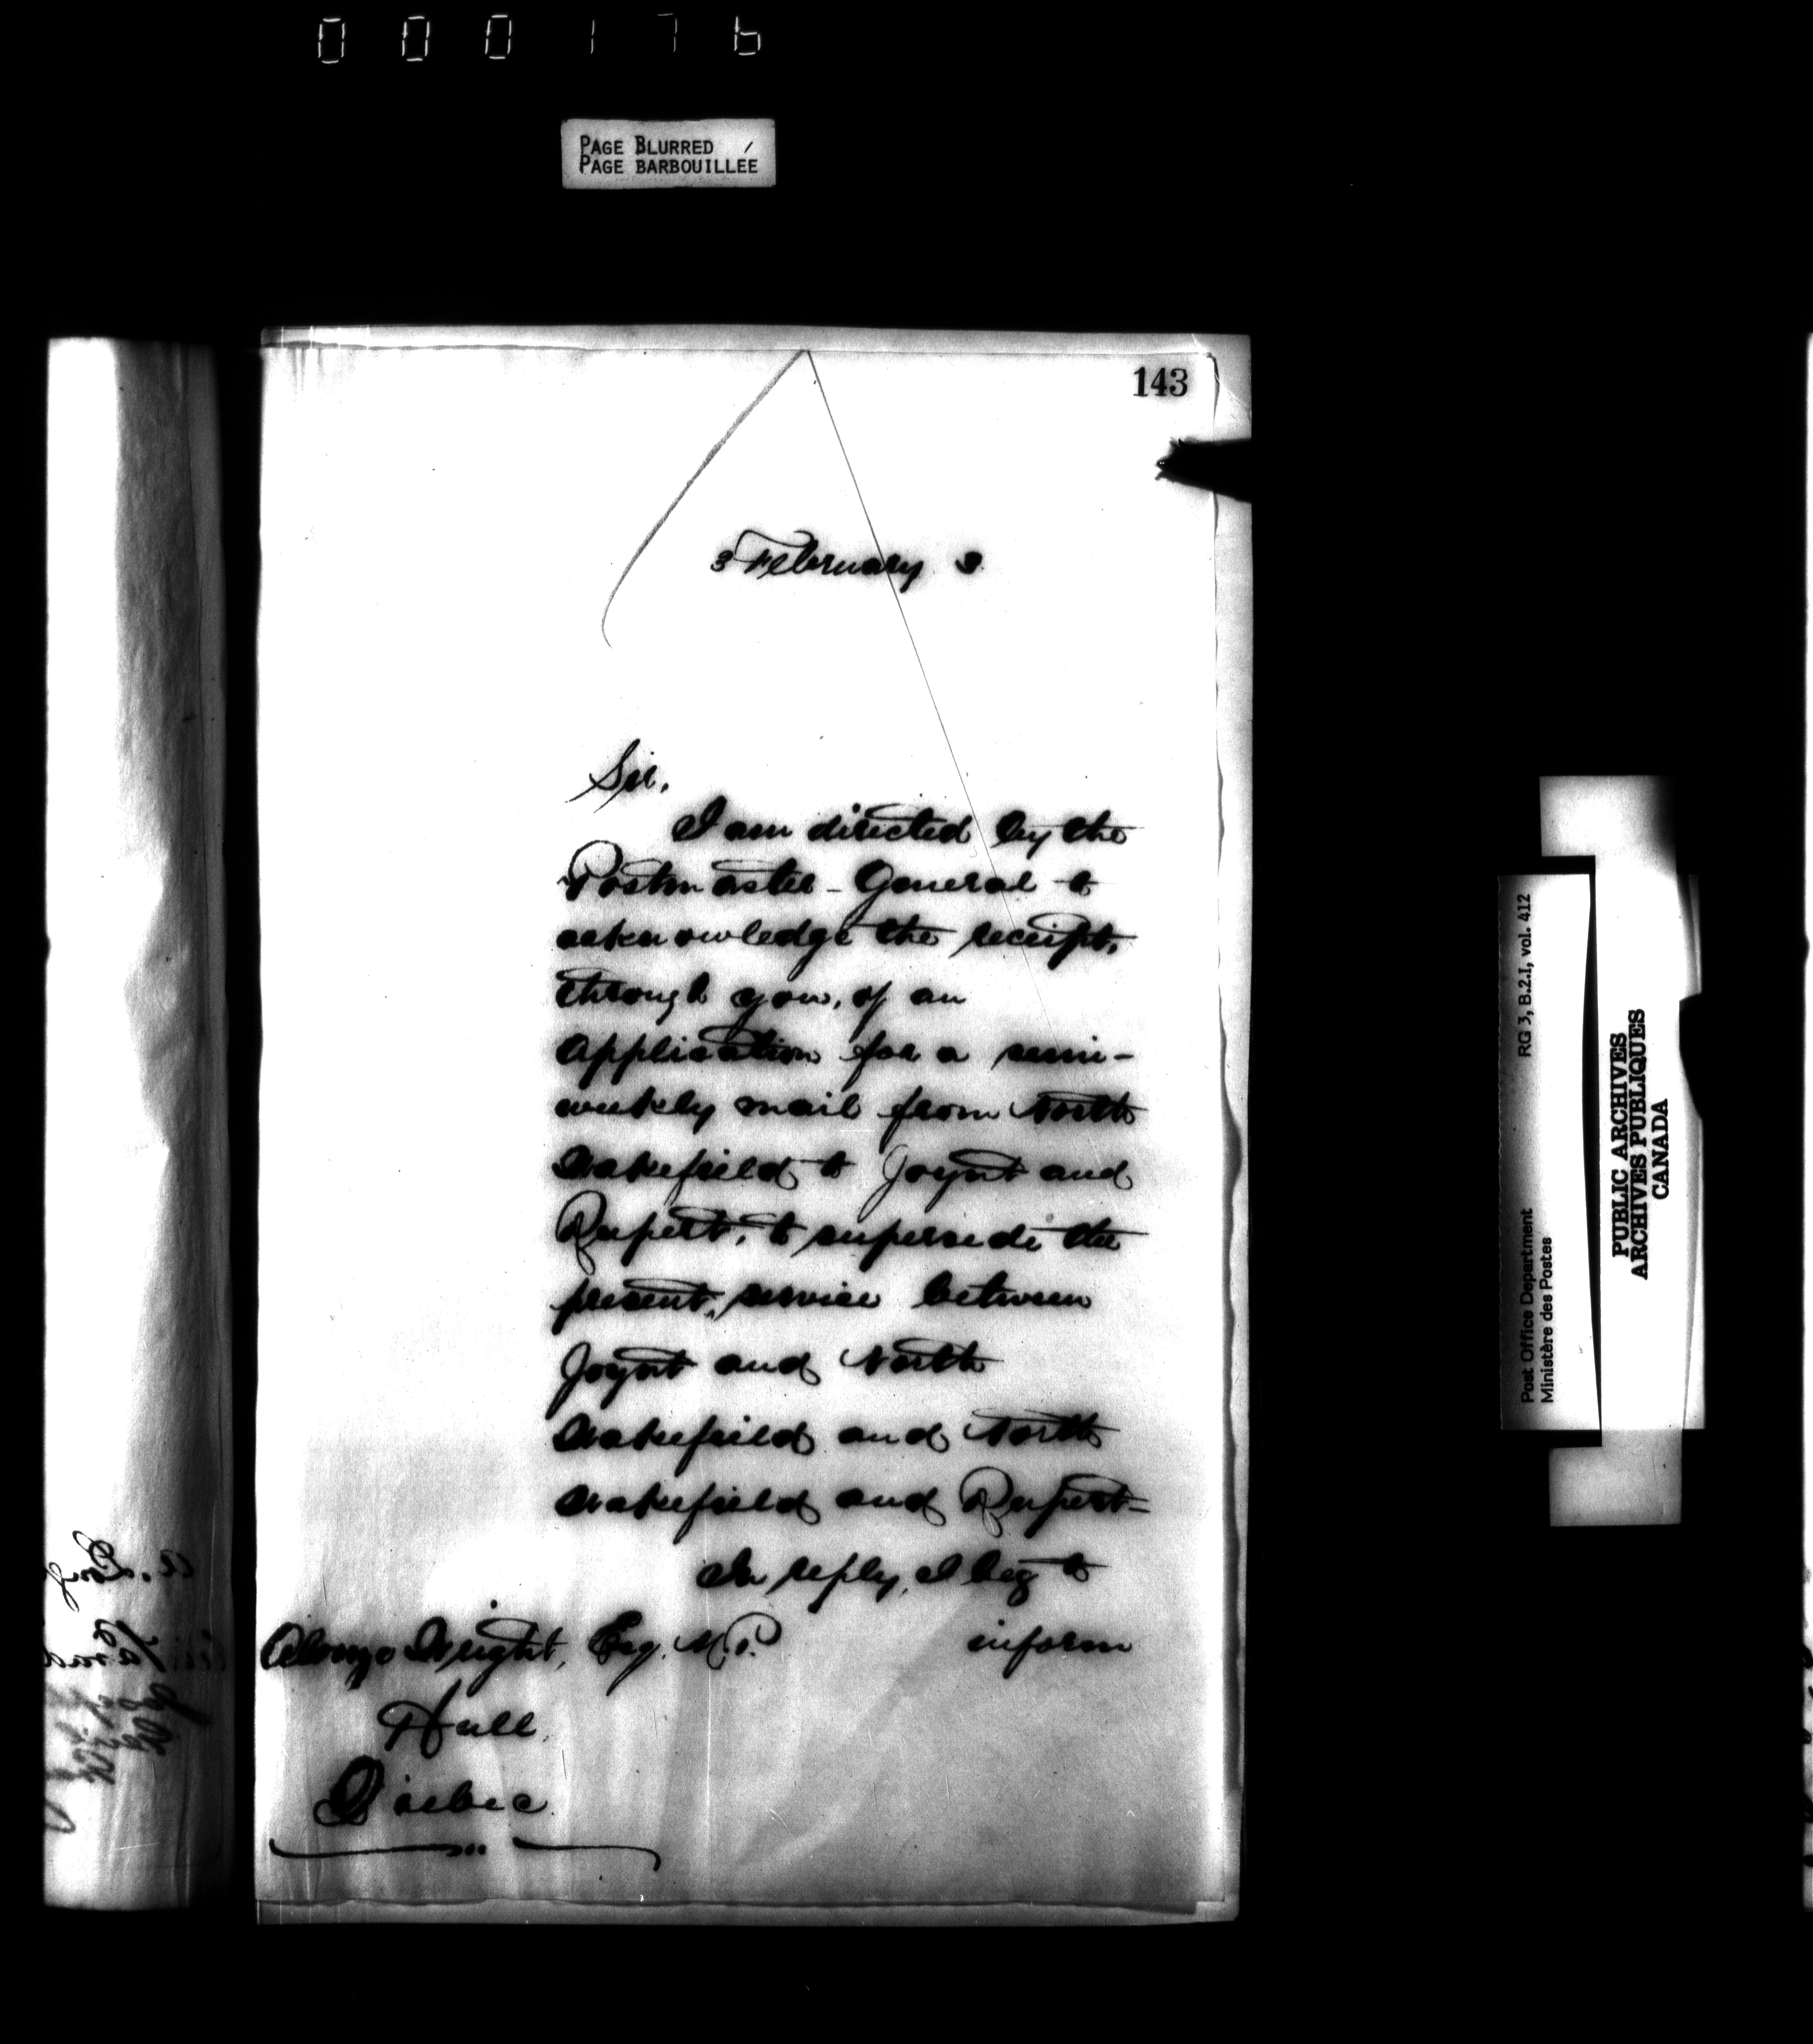 000176
PAGE BLURRED
PAGE BARBOUILLÉE
143
3 February 3
Sir,
I am directed by the
Postmaster-General to
acknowledge the receipt,
through you, of an
application for a semi-
weekly mail from North
Wakefield to Joynt and
Rupert, to supersede the
present service between
Joynt and North
Wakefield and North
Wakefield and Rupert-
In reply, I beg to
inform
Alonzo Wright, Esq. M.P.
Hull,
Quebec.
Post Office Department RG 3, B.2.I, vol. 412
Ministère des Postes
PUBLIC ARCHIVES
ARCHIVES PUBLIQUES
CANADA